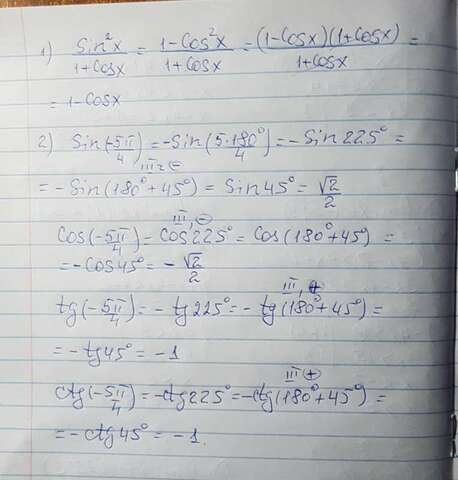 1) Sin²x/1+Cosx = 1-Cos²x/1+Cosx = (1-Cosx)(1+Cosx)/1+Cosx =
= 1-Cosx
2) Sin(-5π/4) = -Sin(5·180°/4) = -Sin225° =
III ч ⊖
= -Sin(180°+45°) = Sin45° = √2/2
III, ⊖
Cos(-5π/4) = Cos225° = Cos(180°+45°) =
= -Cos45° = -√2/2
III, ⊕
tg(-5π/4) = -tg225° = -tg(180°+45°) =
= -tg45° = -1
III ⊕
ctg(-5π/4) = -ctg225° = -ctg(180°+45°) =
= -ctg45° = -1.